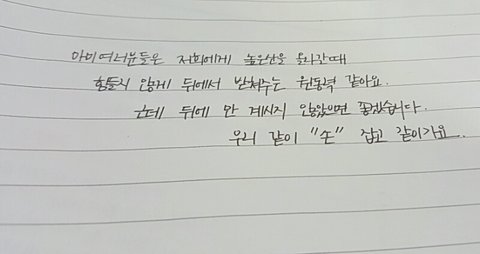 아미여러분들은 저희에게 높은산을 올라갈때
힘들지 않게 뒤에서 받쳐주는 원동력 같아요.
근데 뒤에 만 계시지 않았으면 좋겠습니다.
우리 같이 "손" 잡고 같이가요.